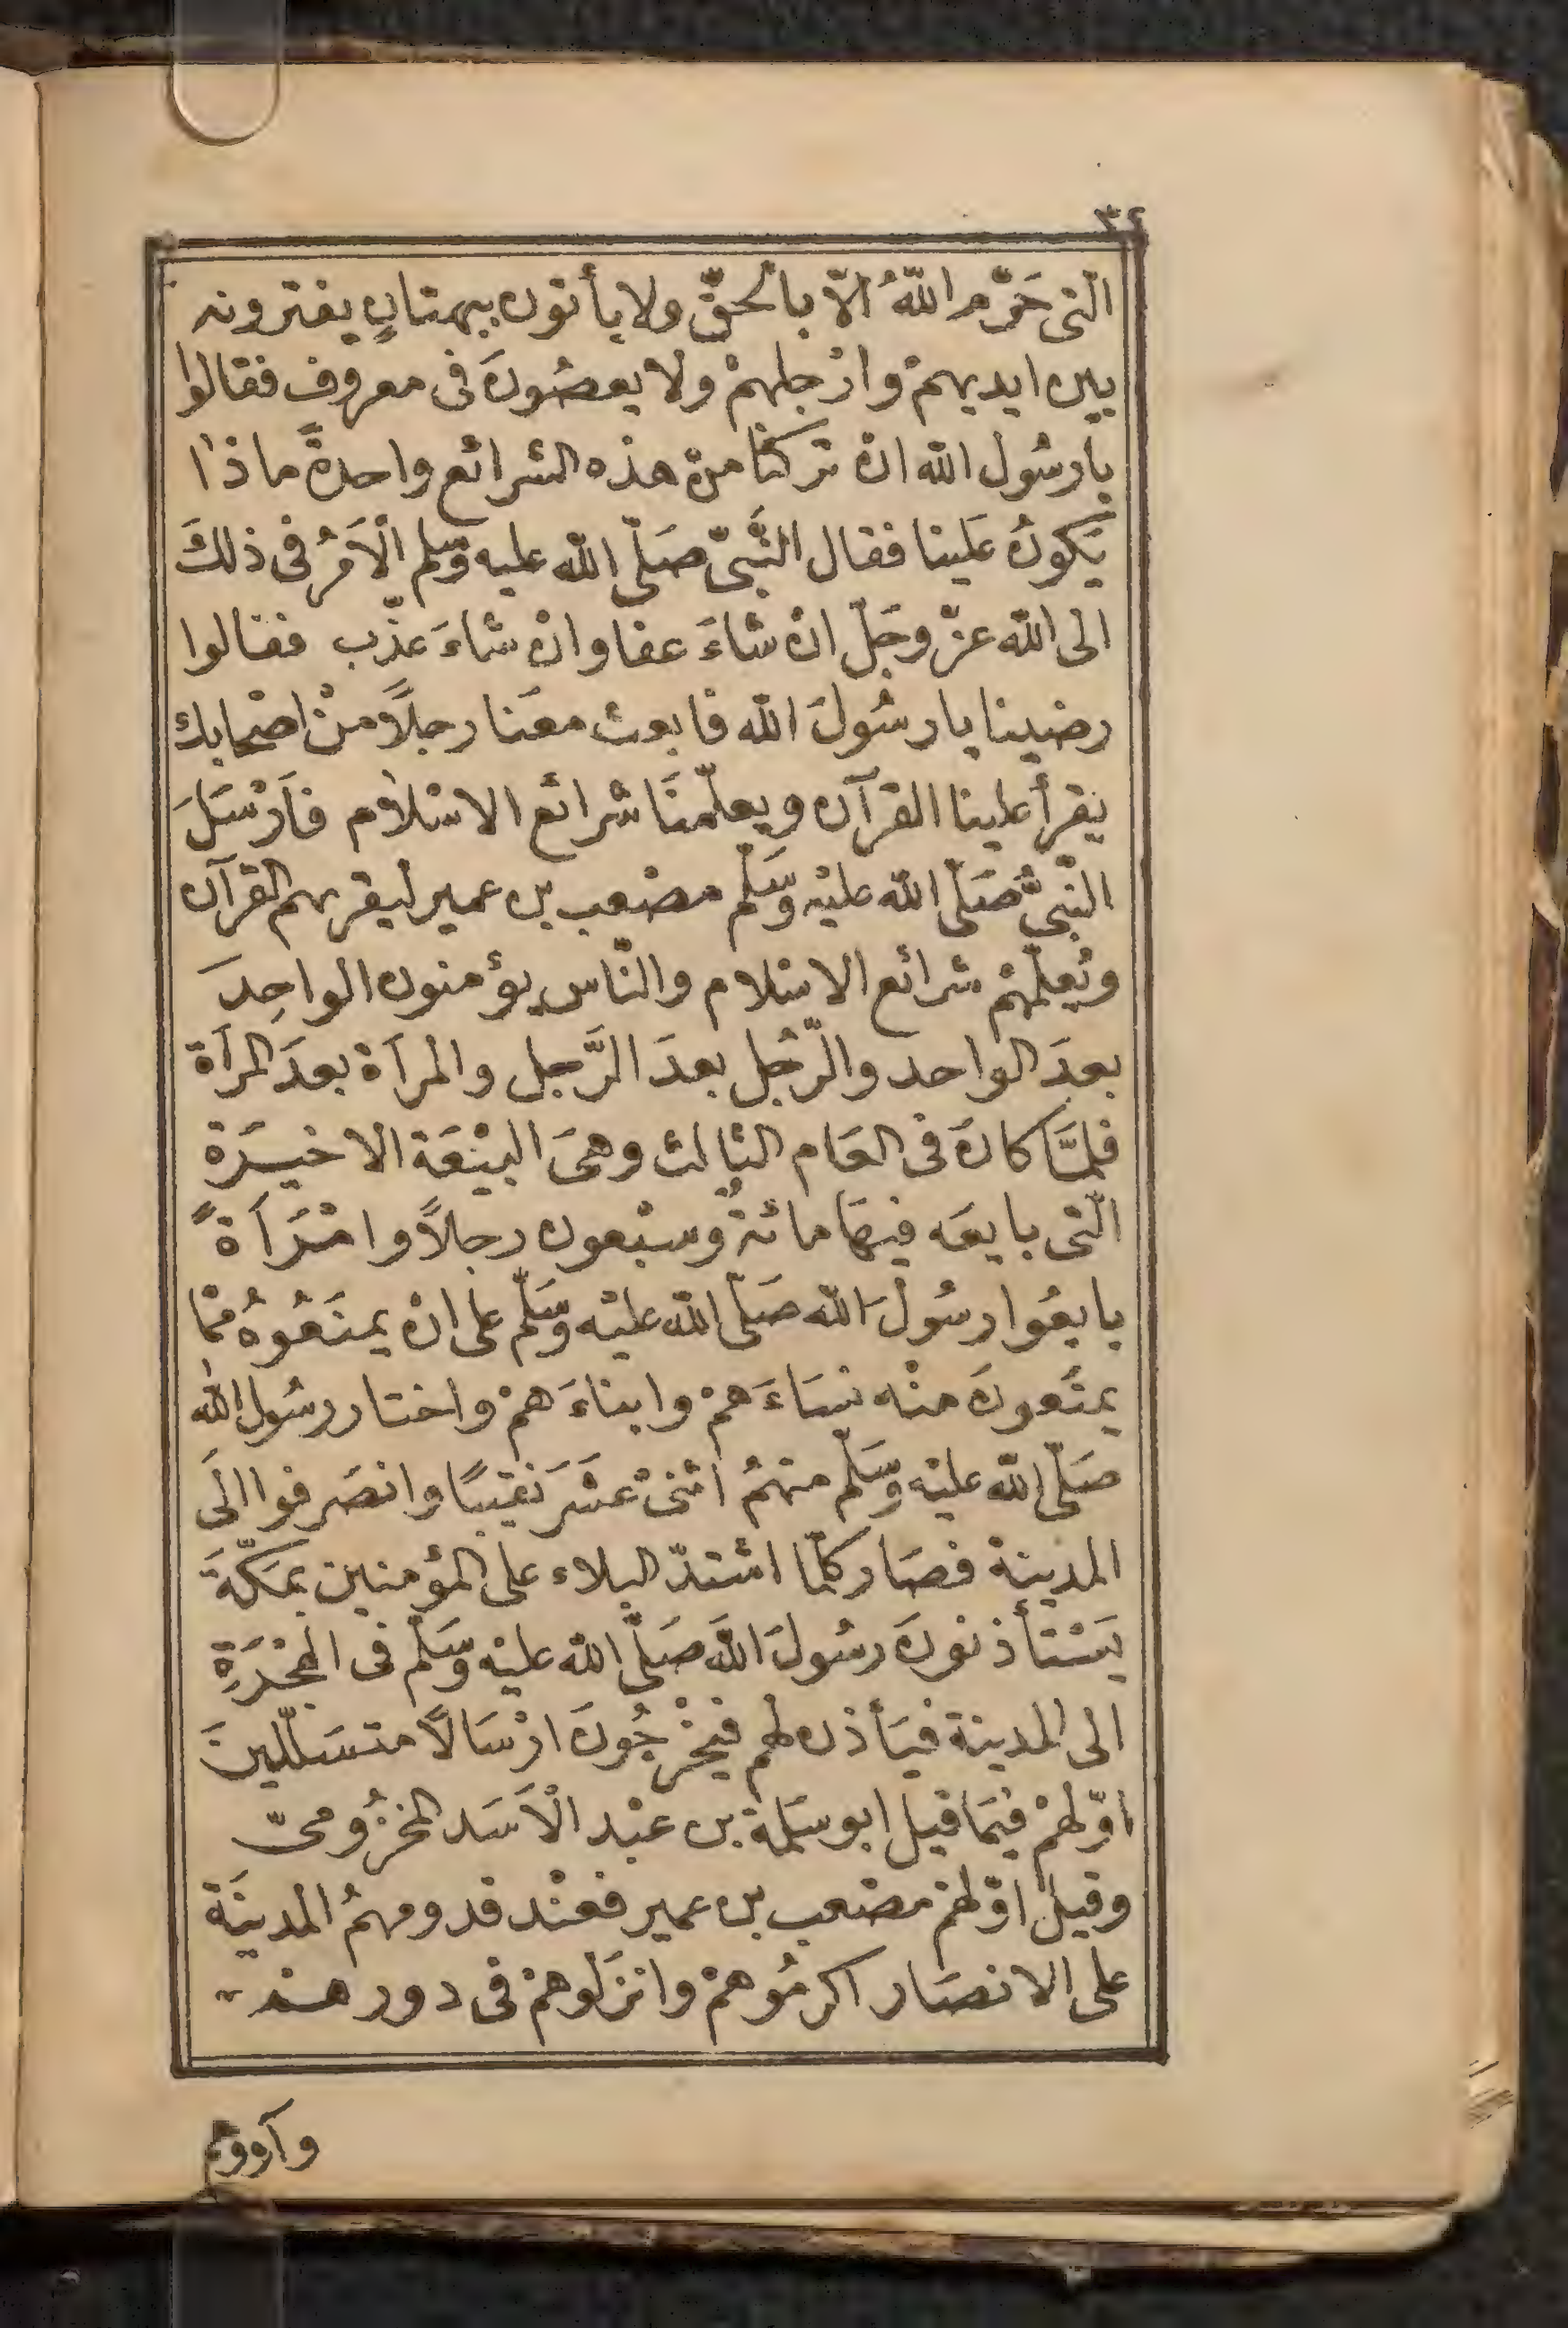 ٣٤
الّتى حَرّم اللّهُ الاّ بالحقّ ولا يأتون ببهتانٍ يفترونه
بين ايديهمْ وارْجلهمْ ولا يعصُونَ فى معروف فقالوا
يا رسُول اللّه انْ تركنَا منْ هذه الشرائع واحدةً ماذا
يَكونُ عَلينا فقال النَّبىّ صَلّى اللّه عليه وَسّلم الْاَمْرُ فى ذلكَ
الى اللّه عزّ وجَلّ انْ شاءَ عفا وانْ شاءَ عذّب فقالوا
رضينا يا رسُولَ اللّه فابعث معَنا رجلاً منْ اصْحابك
يقرأ علينا القرآن ويعلّمنَا شرائع الاسْلام فَاَرْسَلَ
النّبىّ صَلّى اللّه عليْه وَسَلّم مصْعب بن عمير ليقريهم القرآن
ويُعلّمهُمْ شرائع الاسْلام والنّاس يؤمنون الواحِدَ
بعدَ الواحد والرّجُل بعدَ الرَّجل والمرآة بعدَ المرآة
فلمَّا كانَ فى العَام الثالث وهىَ البيْعَة الاخيرَة
الّتى بايعَه فيهَا مائةٌ وسبْعون رجلاً وامْرَآةً
بايعُوا رسُولَ اللّه صَلّى اللّه عليْه وَسَلّم على انْ يمنَعُوهُ ممّا
يمنَعونَ منْه نسَاءَهمْ وابناءَهمْ واختار رسُول اللّه
صَلّى اللّه عليْه وَسَلّم منهمُ اثنىْ عَشَرَ نَقيبًا وانصَرفوا الَى
المدينة فصَار كلّما اشتدّ البلاء على المؤمنين بمَكّةَ
يَسْتأذنونَ رسُولَ اللّهَ صَلّى اللّه عليْه وَسَلّم فى الهجْرَةِ
الى المدينة فيَأذن لهم فيخْرجُونَ ارْسَالاً متسَلّلينَ
اوّلهمْ فيمَا قيل ابو سَلمة بن عبْد الْاَسَد المخزُومىّ
وقيلَ اوّلهمْ مصْعب بن عمير فعنْد قدومهمُ المدينَة
على الانصَار اكرمُوهمْ وانزَلوهمْ فى دورهمْ
وآووهم